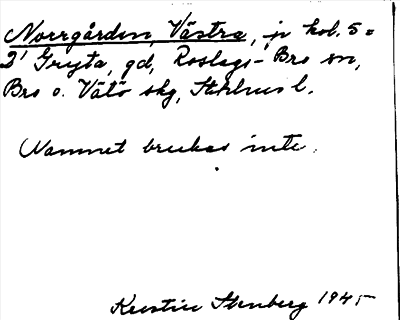 Norrgården, Västra, jr kol. 5 =
2¹ Gryta, gd, Roslags-Bro sn,
Bro o. Vätö skg, Sthlms l.
Namnet brukas inte.
Kerstin Stenberg 1945